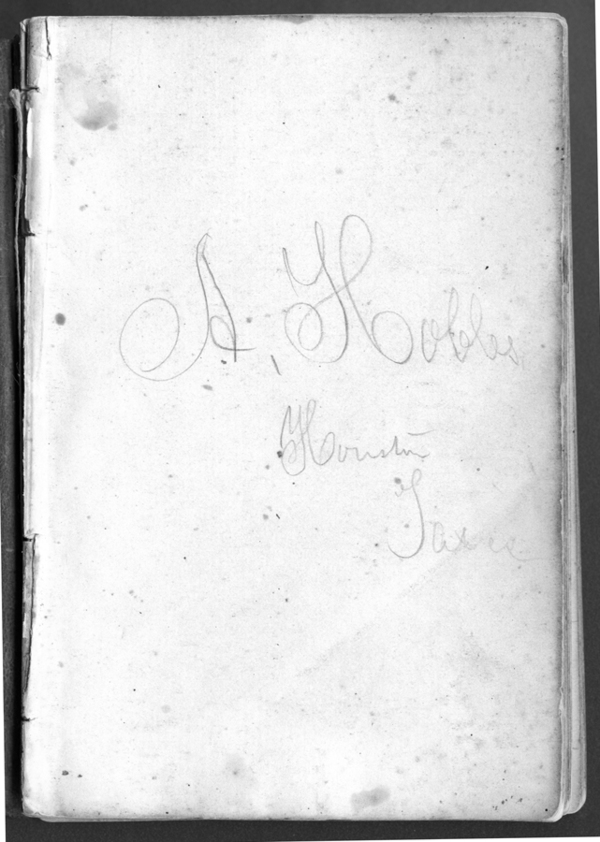 A. Hobbs
Houston
Texas